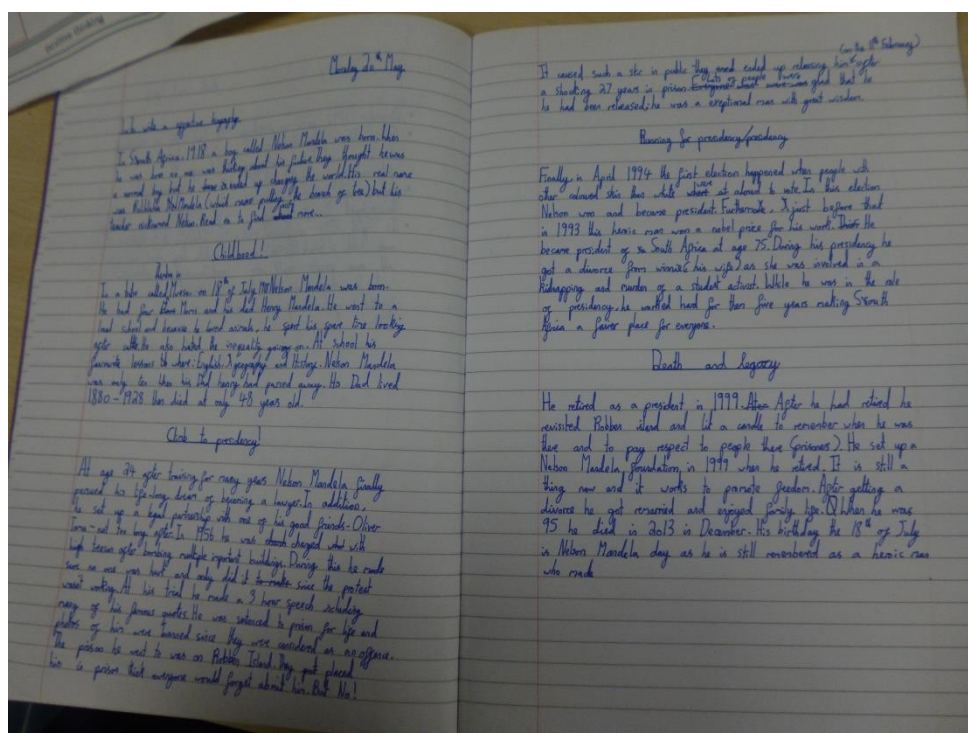 positive thinking
Monday 20th May
Lo: write a effective biography
In South Africa. 1918 a boy called Nelson Mandela was born. When
he was born no one was thinking about his future. they thought he was
a normal boy but he ended up changing the world. His real name
was Rolihlahla Mandela (which name pulling the branch of tree) but his
teacher nicknamed Nelson. Read on to find out more...
Childhood!
In a hut called Mvezo on 18th of July, Mr Nelson Mandela was born.
He had four Mums and his dad Henry Mandela. He went to a
local school and because he loved animals, he spent his spare time looking
after cattle. He also hated the inequality going on. At school his
favourite lessons where: English, geography and History. Nelson Mandela
was only ten when his Dad henry had passed away. His Dad lived
1880-1928 then died at only 48 years old.
Climb to presidency!
At age 24 after training for many years Nelson Mandela finally
persued his life-long dream of becoming a lawyer. In addition,
he set up a legal partnership with one of his good friends - Oliver
Tambo - not long after. In 1956 he was charged with
high treason after bombing multiple important buildings. During this he made
sure no one was hurt and only did it to make since the protest
wasn't working. At his trial he made a 3 hour speech including
many of his famous quotes. He was sentenced to prison for life and
photos of him were banned since they were considered as an offence.
The prison he went to was on Robben Island. they got placed
him in prison that everyone would forget about him. But No!
(on the 11th February)
It caused such a stir in public they ended up releasing him after
a shocking 27 years in prison. Lots of people were glad that he
he had been released, he was a exeptional man with great wisdom.
Running for presidency/presidency
Finally, in April 1994 the first election happened when people with
other coloured skin than white where were at aloud to vote. In this election
Nelson won and became president. Furthermore, just before that
in 1993 this heroic man won a nobel price for his work. He
became president of South Africa at age 75. During his presidency he
got a divorce from winnie (his wife) as she was involved in a
kidnapping and murder of a student activist. While he was in the role
of presidency, he worked hard for them five years making South
Africa a fairer place for everyone.
Death and legacy
He retired as a president in 1999. After he had retired he
revisited Robben island and lit a candle to remember when he was
there and to pay respect to people there (prisoners). He set up a
Nelson Mandela foundation, in 1999 when he retired. It is still a
thing now and it works to promote freedom. After getting a
divorce he got remarried and enjoyed family life. When he was
95 he died in 2013 in December. His birthday the 18th of July
is Nelson Mandela day as he is still remembered as a heroic man
who made